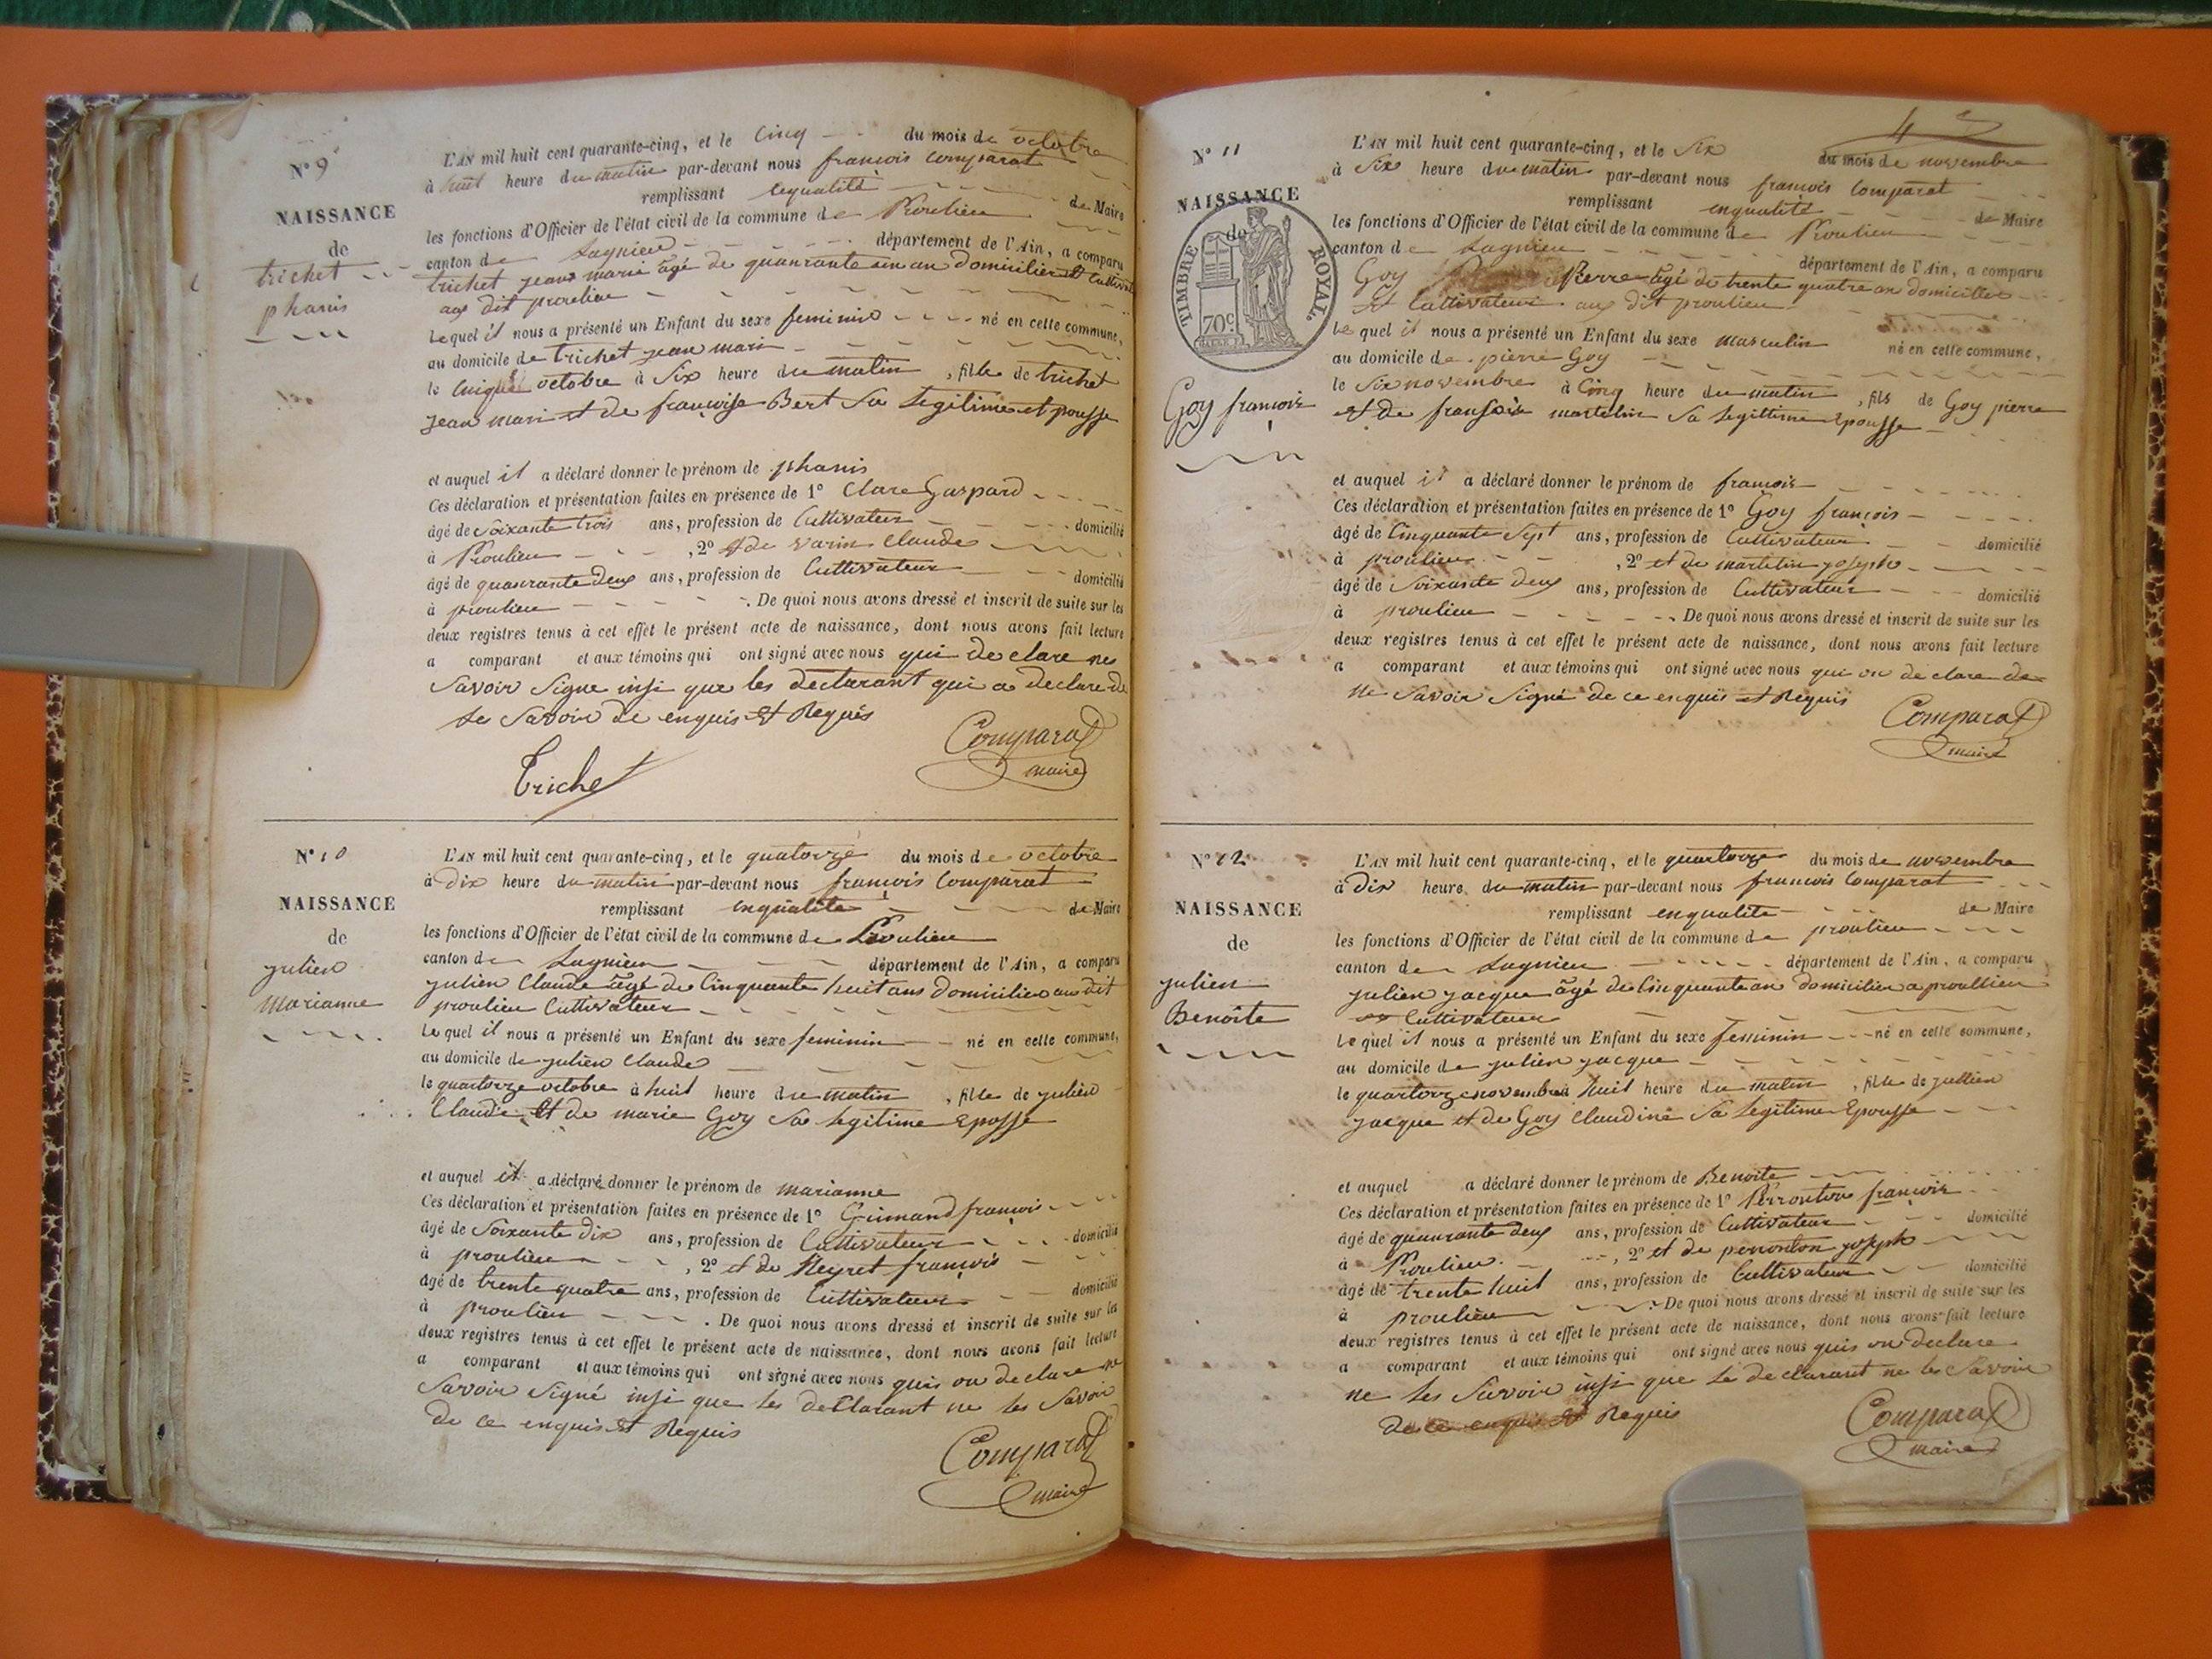 N° 9
NAISSANCE
de
trichet
phanis
L'AN mil huit cent quarante-cinq, et le Cinq du mois de octobre
à huit heure du matin par-devant nous françois Comparat
remplissant enqualité de Maire
les fonctions d'Officier de l'état civil de la commune de Proulieu
canton de Lagnieu département de l'Ain, a comparu
trichet jean marie âgé de quanrante un an Domicilier Et Cultivat
aux dit proulieu
Lequel il nous a présenté un Enfant du sexe feminin né en cette commune,
au domicile de trichet jean mari
le Cinque octobre à Six heure du matin, fille de trichet
jean mari et de françoise Bert Sa Legitime et pousse
et auquel il a déclaré donner le prénom de phanis
Ces déclaration et présentation faites en présence de 1° Clare Gaspard
âgé de Soixante trois ans, profession de Cultivateur domicilié
à Proulieu, 2° et de varin Claude
âgé de quanrante deux ans, profession de Cultivateur domicilié
à proulieu. De quoi nous avons dressé et inscrit de suite sur les
deux registres tenus à cet effet le présent acte de naissance, dont nous avons fait lecture
a comparant et aux témoins qui ont signé avec nous qui de clare ne
Savoir Signe insi que les declarant qui a declare de
le Savoir de enquis Et Requis
Trichet
Comparat
maire
N° 10
NAISSANCE
de
julien
marianne
L'AN mil huit cent quarante-cinq, et le quatorze du mois de octobre
à Dix heure du matin par-devant nous françois Comparat
remplissant enqualité de Maire
les fonctions d'Officier de l'état civil de la commune de Proulieu
canton de Lagnieu département de l'Ain, a comparu
julien Claude âgé de Cinquante huit ans Domicilier au dit
proulieu Cultivateur
Lequel il nous a présenté un Enfant du sexe feminin né en cette commune,
au domicile de julien Claude
le quartorze octobre à huit heure du matin, fille de julien
Claude Et de marie Goy Sa legitime Eposse
et auquel il a déclaré donner le prénom de marianne
Ces déclaration et présentation faites en présence de 1° Grimand françois
âgé de Soixante dix ans, profession de Cultivateur domicilié
à proulieu, 2° et de Neyret françois
âgé de trente quatre ans, profession de Cultivateur domicilié
à proulieu. De quoi nous avons dressé et inscrit de suite sur les
deux registres tenus à cet effet le présent acte de naissance, dont nous avons fait lecture
a comparant et aux témoins qui ont signé avec nous quis on declare ne
Savoir Signé insi que les deClarant ne les Savoir
de ce enquis Et Requis
Comparat
maire
4
N° 11
NAISSANCE
de
TIMBRE ROYAL.
70c
Goy francois
L'AN mil huit cent quarante-cinq, et le Six du mois de novembre
à Six heure du matin par-devant nous francois Comparat
remplissant enqualité de Maire
les fonctions d'Officier de l'état civil de la commune de Proulieu
canton de Lagnieu département de l'Ain, a comparu
Goy Pierre âgé de trente quatre an domicilier
Et Cultivateur aux dit proulieu
Le quel il nous a présenté un Enfant du sexe masculin né en cette commune,
au domicile de pierre Goy
le Six novembre à Cinq heure du matin, fils de Goy pierre
et de fransoise martelin Sa legittime Epousse
et auquel il a déclaré donner le prénom de francois
Ces déclaration et présentation faites en présence de 1° Goy françois
âgé de Cinquante Sept ans, profession de Cultivateur domicilié
à proulieu, 2° et de martelin joseph
âgé de Soixante deux ans, profession de Cultivateur domicilié
à proulieu. De quoi nous avons dressé et inscrit de suite sur les
deux registres tenus à cet effet le présent acte de naissance, dont nous avons fait lecture
a comparant et aux témoins qui ont signé avec nous qui on de clare de
ne Savoir Signé de ce enquis et Requis
Comparat
maire
N° 12
NAISSANCE
de
julien
Benoite
L'AN mil huit cent quarante-cinq, et le quartorze du mois de novembre
à Dix heure du matin par-devant nous francois Comparat
remplissant enqualite de Maire
les fonctions d'Officier de l'état civil de la commune de proulieu
canton de Lagnieu département de l'Ain, a comparu
julien jacque âgé de Cinquante an domicilier a proullieu
Cultivateur
Le quel il nous a présenté un Enfant du sexe feminin né en cette commune,
au domicile de julien jacque
le quartorze novembre à huit heure du matin, fille de jullien
jacque et de Goy Claudine Sa legitime Epousse
et auquel a déclaré donner le prénom de Benoite
Ces déclaration et présentation faites en présence de 1° Perronton françois
âgé de quanrante deux ans, profession de Cultivateur domicilié
à Proulieu, 2° et de peronton joseph
âgé de trente huit ans, profession de Cultivateur domicilié
à proulieu. De quoi nous avons dressé et inscrit de suite sur les
deux registres tenus à cet effet le présent acte de naissance, dont nous avons fait lecture
a comparant et aux témoins qui ont signé avec nous quis on declare
ne les Savoir insi que le declarant ne les Savoir
de ce enquis Et Requis
Comparat
maire